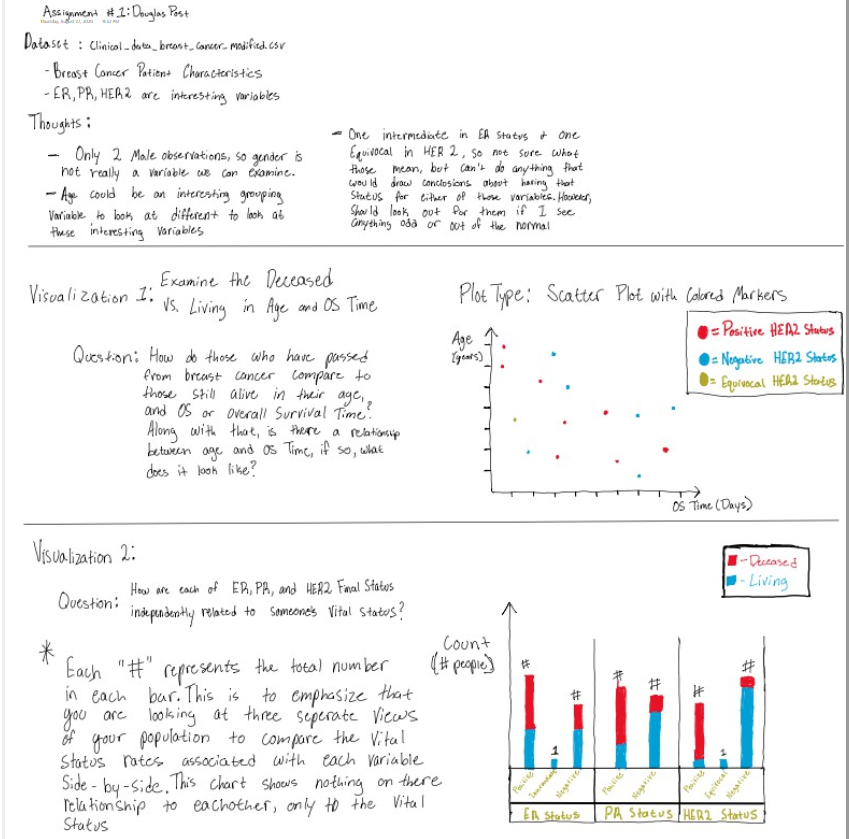 Assignment #1: Douglas Post
Thursday, August 27, 2020 9:52 PM
Dataset : Clinical_data_breast_cancer_modified.csv
- Breast Cancer Patient Characteristics
- ER, PR, HER2 are interesting variables
Thoughts :
- Only 2 Male observations, so gender is
not really a variable we can examine.
- Age could be an interesting grouping
Variable to look at different to look at
these interesting Variables
- One intermediate in ER Status & one
Equivocal in HER 2, so not sure what
those mean, but can't do anything that
would draw conclusions about having that
Status for either of those variables. However,
Should look out for them if I see
anything odd or out of the normal
Visualization 1: Examine the Deceased
vs. Living in Age and OS Time
Question: How do those who have passed
from breast cancer compare to
those still alive in their age,
and OS or Overall Survival Time?
Along with that, is there a relationship
between age and OS Time, if so, what
does it look like?
Plot Type: Scatter Plot with Colored Markers
= Positive HER2 Status
= Negative HER2 Status
= Equivocal HER2 Status
Age
(years)
OS Time (Days)
Visualization 2:
Question: How are each of ER, PR, and HER2 Final Status
independently related to someone's Vital Status?
* Each "#" represents the total number
in each bar. This is to emphasize that
you are looking at three seperate views
of your population to compare the Vital
Status rates associated with each Variable
Side-by-side. This chart shows nothing on there
relationship to eachother, only to the Vital
Status
- Deceased
- Living
Count
(# people)
# 1 # # # # 1 #
Positive Negative Positive Negative Positive Equivocal Negative
ER Status PR Status HER2 Status